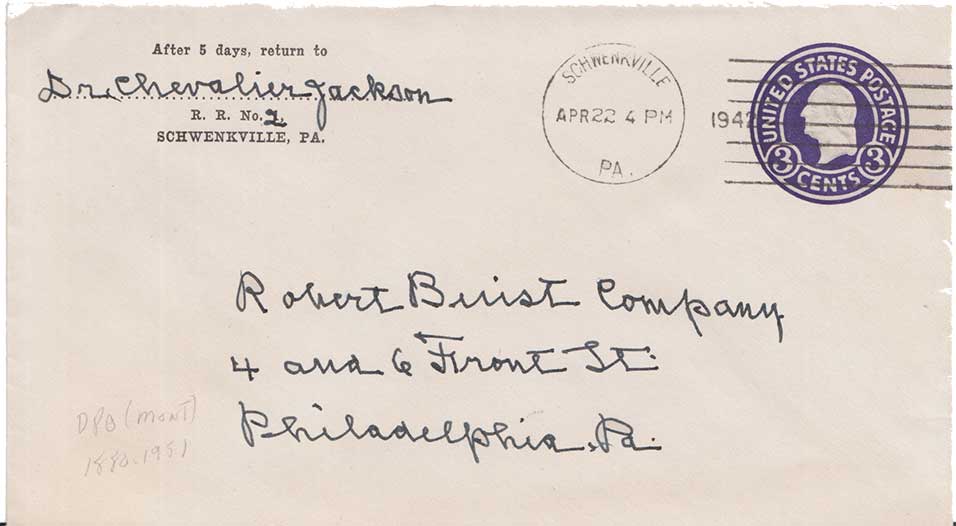 After 5 days, return to
Dr. Chevalier Jackson
R. R. No. 2.
SCHWENKVILLE, PA.
SCHWENKVILLE
APR 22 4 PM
1942
PA.
UNITED STATES POSTAGE
3 CENTS 3
Robert Buist Company
4 and 6 Front St.
Philadelphia, Pa.
DPO (MONT)
1880-1951